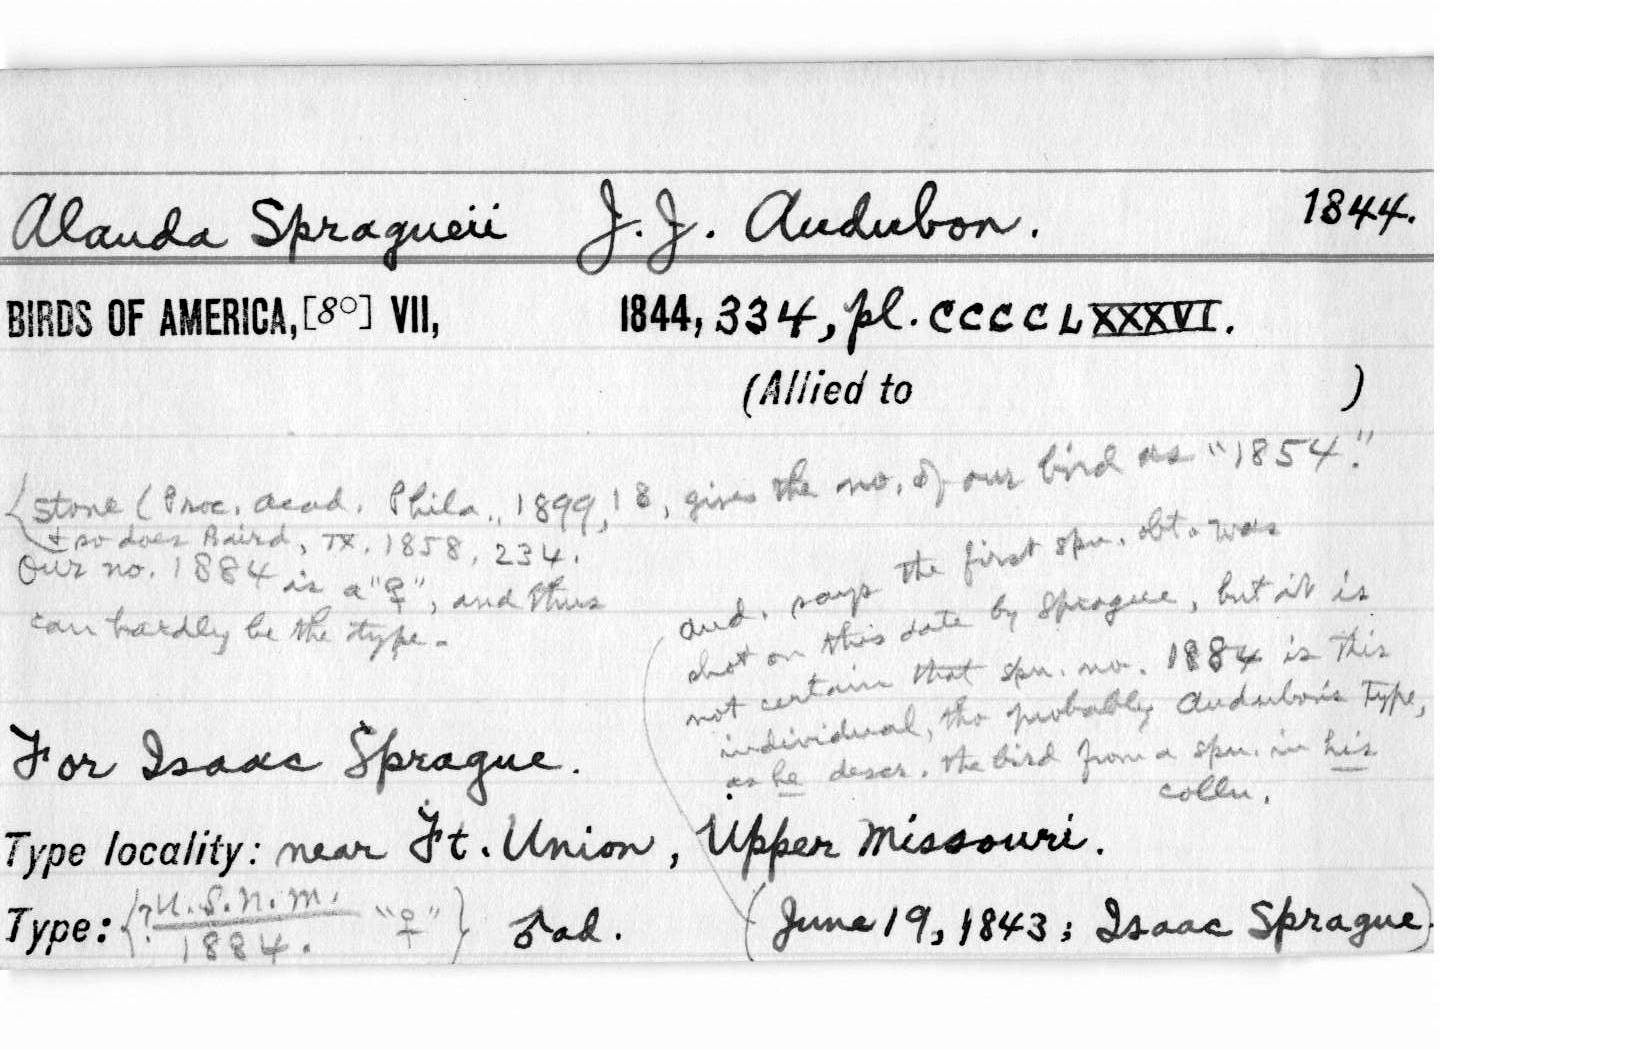 Alauda Spragueii J. J. Audubon. 1844.
BIRDS OF AMERICA, [8°] VII, 1844, 334, pl. CCCCLXXXVI.
(Allied to )
Stone (Proc. Acad. Phila., 1899, 18, gives the no. of our bird as "1854."
& so does Baird, IX, 1858, 234.
Our no. 1884 is a "♀", and thus
can hardly be the type.
Aud. says the first spn. obt. was
shot on this date by Sprague, but it is
not certain that spn. no. 1884 is this
individual, tho probably Audubon's Type,
as he descr. the bird from a spn. in his
colln.
For Isaac Sprague.
Type locality: near Ft. Union, Upper Missouri.
Type: {? U.S.N.M. 1884. "♀"} ♂ ad. (June 19, 1843; Isaac Sprague).